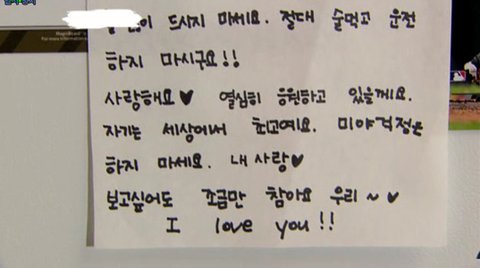 드시지 마세요. 절대 술먹고 운전
하지 마시구요!!
사랑해요♥ 열심히 응원하고 있을께요.
자기는 세상에서 최고예요. 미야걱정은
하지 마세요. 내사랑♥
보고싶어도 조금만 참아요 우리~♥
I love you!!